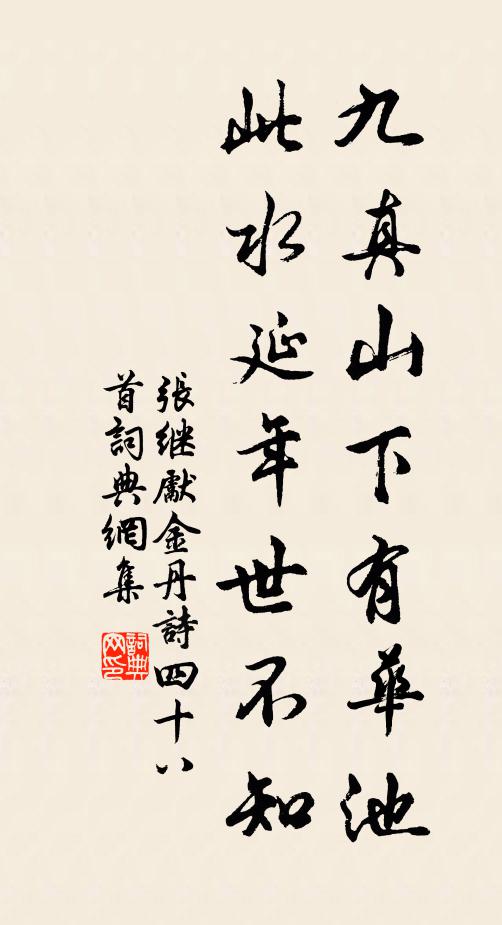 九真山下有華池
此水延年世不知
張继獻金丹詩四十八
首詞典網集
詞典
网印